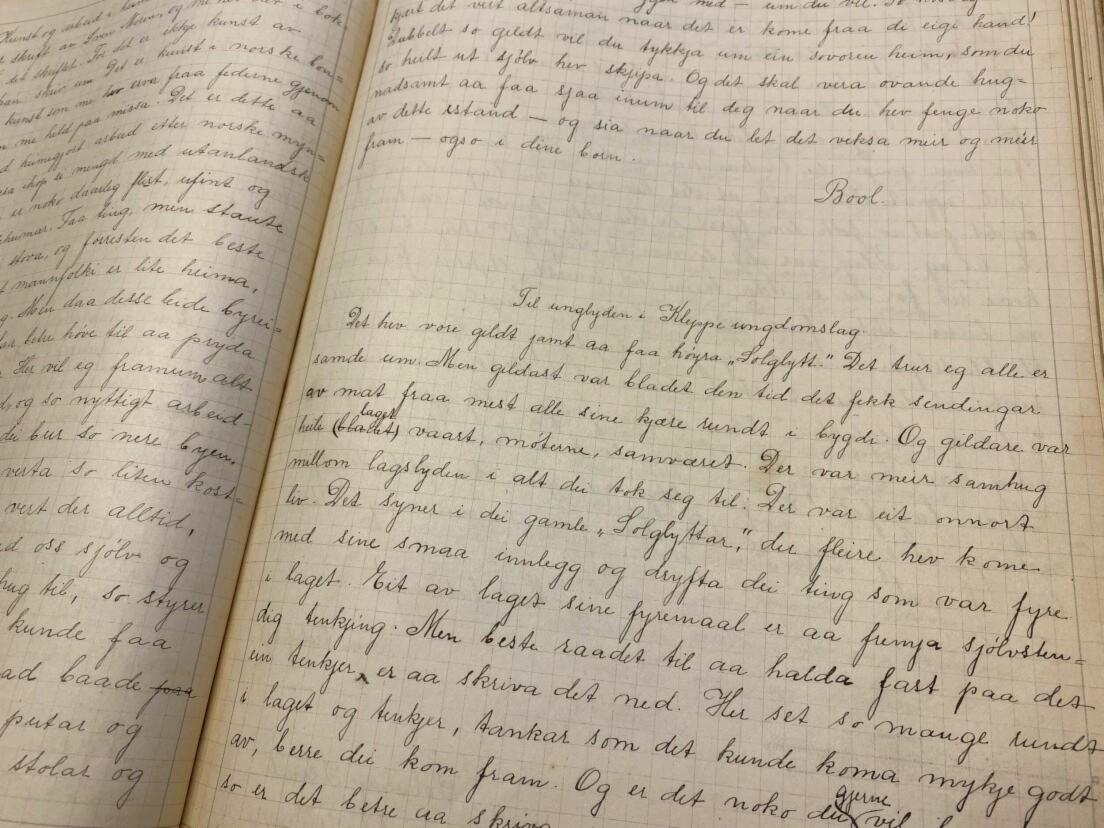 Kunst og arbeid i
skrift av Sven Moren, og me
det skriftet. For det er ikkje kunst av
han skriv um. Det er kunst i norske bon=
kunst som me hev erva fraa federne gjenom
me held paa missa. Det er dette aa
heimegjort arbeid etter norske myn=
er mengd med utanlandsk
er noko daarleg flest, ufint og
heimar. Faa ting, men staute
stova, og forresten det beste
mannfolki er lite heima,
Men daa desse leide byrei=
betre høve til aa pryda
Her vil eg framum alt
og so nyttigt arbeid
dei bur so nere byen.
verta so liten kost=
vert der alltid,
oss sjølv og
hug til, so styrer
kunde faa
baade fraa
putar og
stolar og
kjært det vert altsaman naar det er kome fraa di eigi hand!
Dubbelt so gildt vil du tykkja um ein sovoren heim, som du
so heilt ut sjølv hev skjipa. Og det skal vera ovande hug=
nadsamt aa faa sjaa inum til deg naar du hev fenge noko
av dette istand — og sia naar du let det veksa meir og meir
fram — ogso i dine born.
Bool.
Til unglyden i Kleppe ungdomslag.
Det hev vore gildt jamt aa faa høyra „Solglytt." Det trur eg alle er
samde um. Men gildast var bladet den tid det fekk sendingar
av mat fraa mest alle sine kjære rundt i bygdi. Og gildare var
heile (bladet) laget vaart, møterne, samværet. Der var meir samhug
millom lagslyden i alt dei tok seg til. Der var eit onnort
liv. Det syner i dei gamle „Solglyttar," der fleire hev kome
med sine smaa innlegg og dryfta dei ting som var fyre
i laget. Eit av laget sine fyremaal er aa fremja sjølvsten=
dig tenkjing. Men beste raadet til aa halda fast paa det
ein tenkjer, er aa skriva det ned. Her set so mange rundt
i laget og tenkjer, tankar som det kunde koma mykje godt
av, berre dei kom fram. Og er det noko du gjerne vil
so er det betre aa skriva